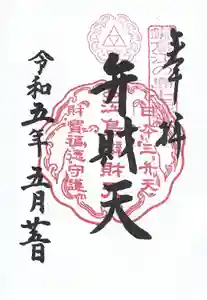 奉拝
弁財天
令和五年五月廿五日
日本三弁天
財寶福徳守護